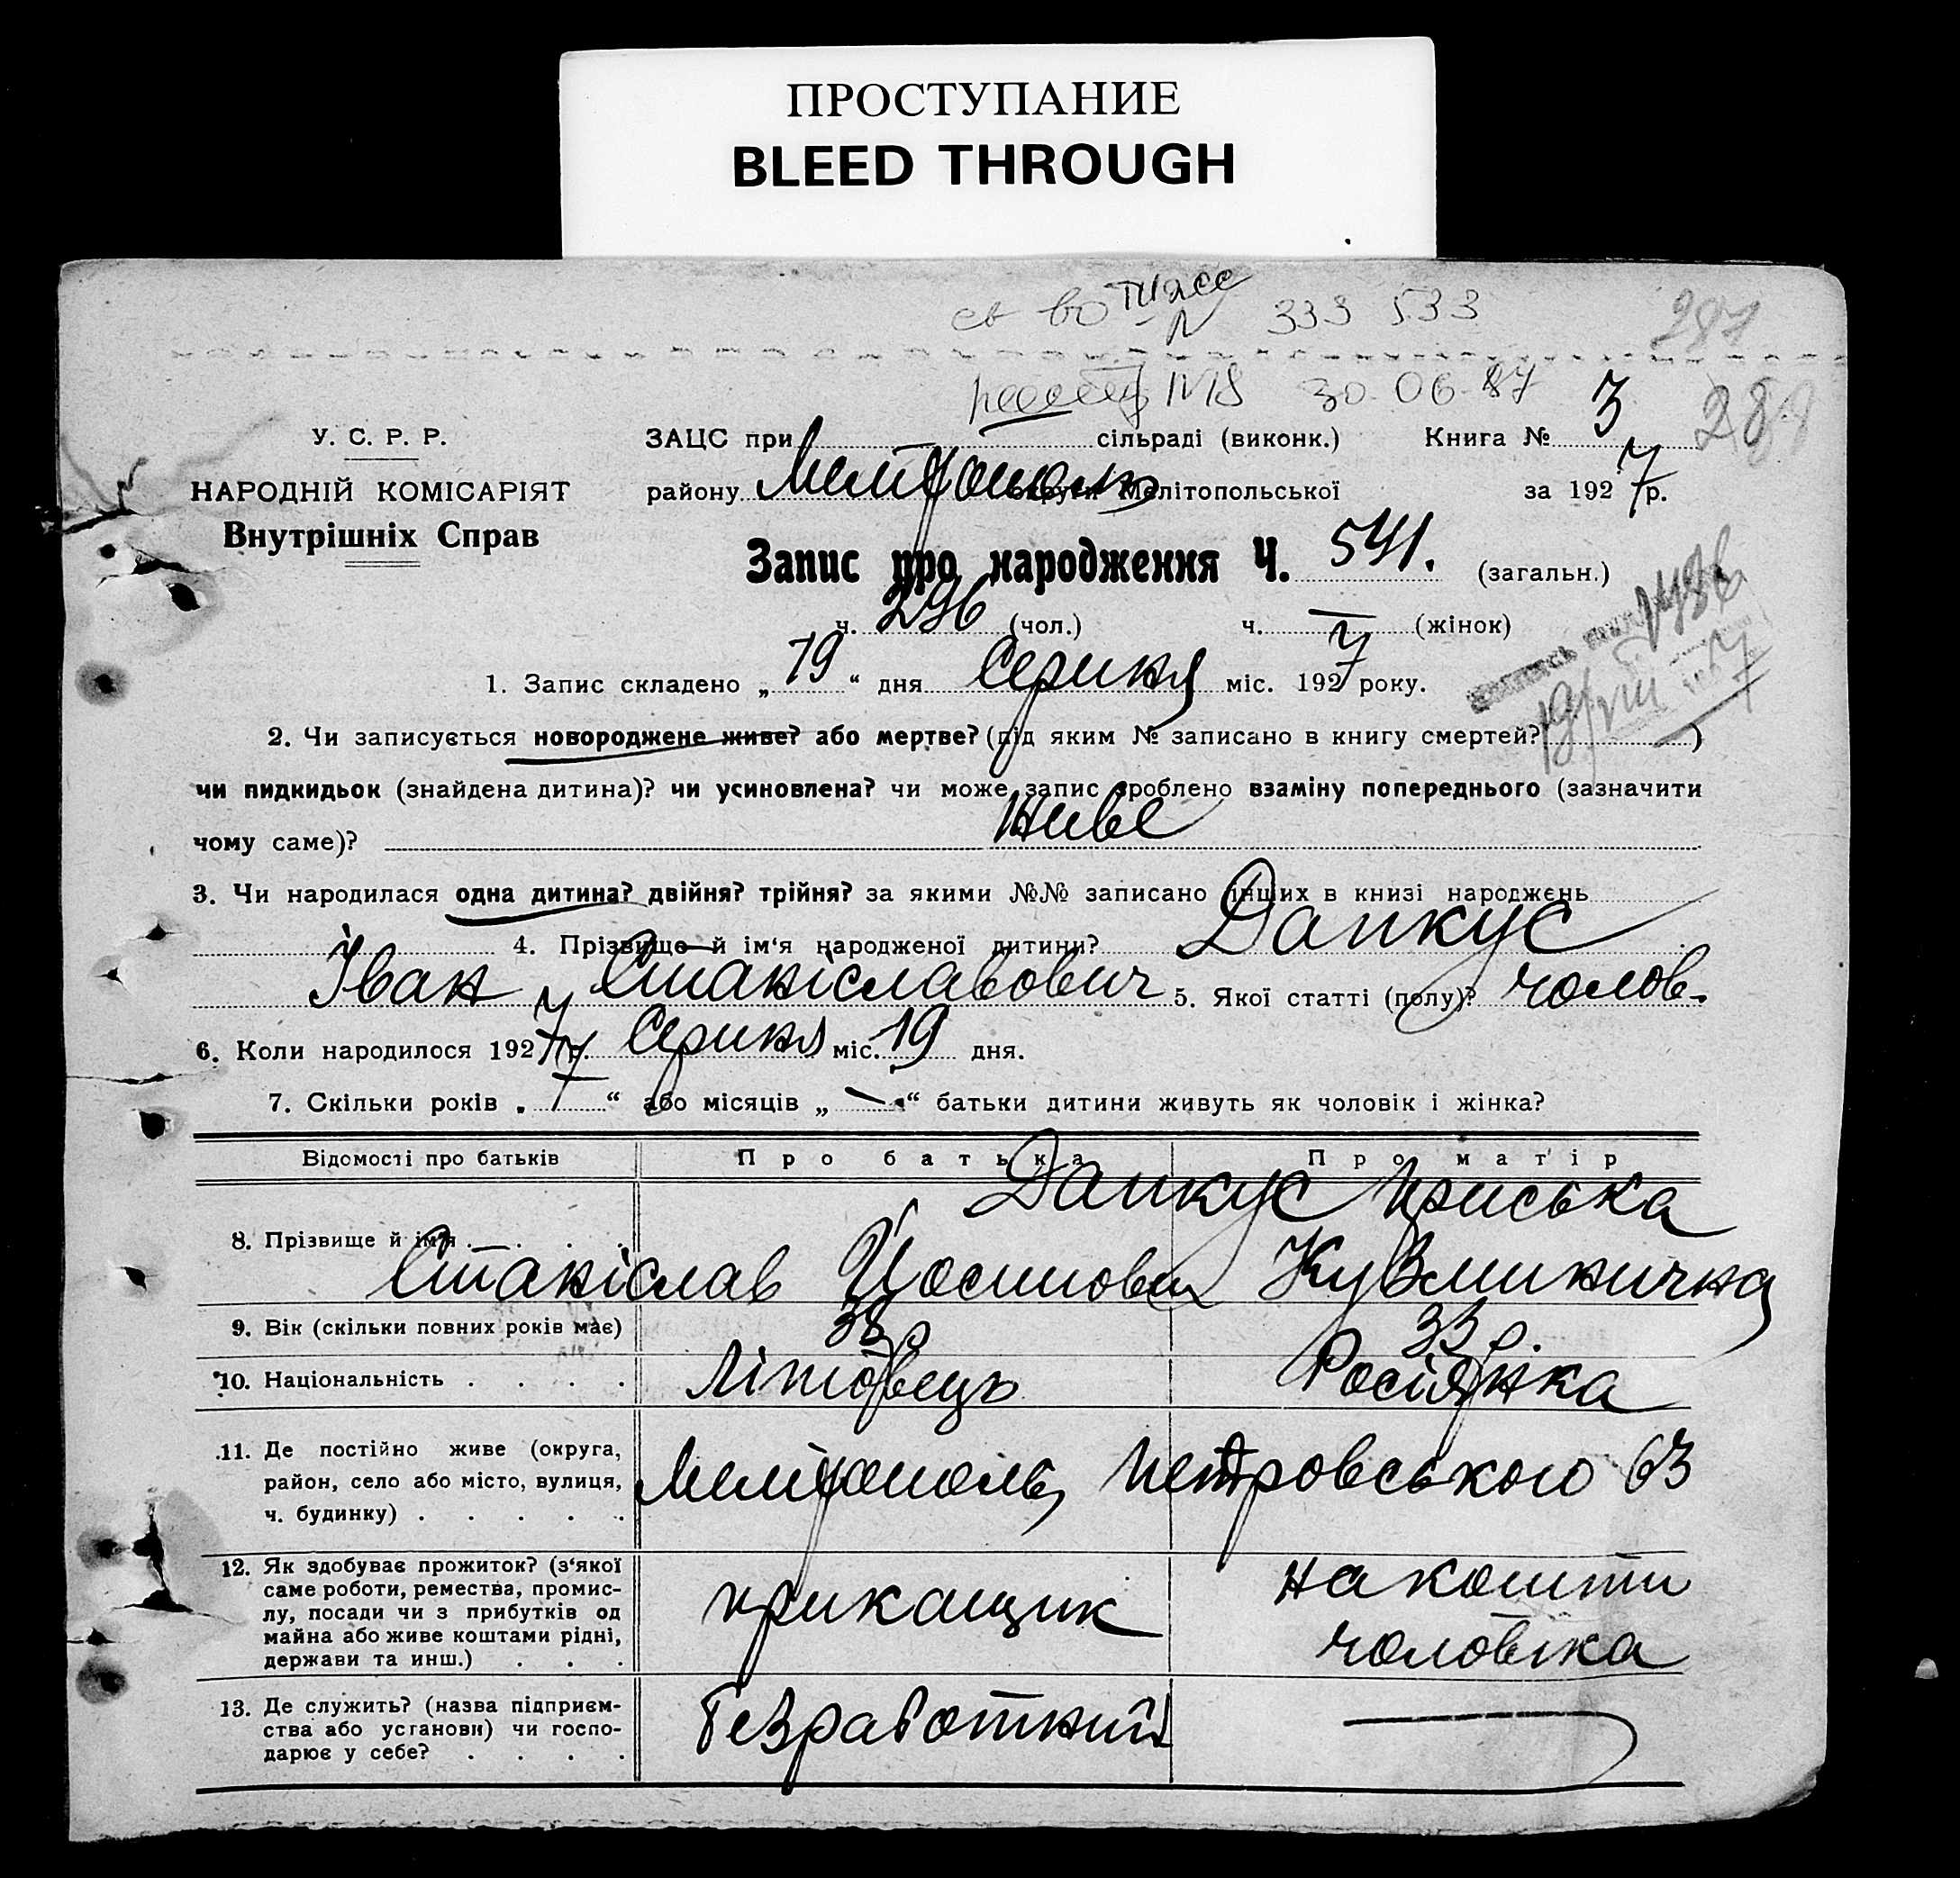 ПРОСТУПАНИЕ
BLEED THROUGH
св во N 333 533
281
30 06 87
У. С. Р. Р.
ЗАЦС при сільраді (виконк.) Книга № 3
288
НАРОДНІЙ КОМІСАРІЯТ
району Мелітополь округи Мелітопольської за 1927 р.
Внутрішніх Справ
Запис про народження Ч. 541. (загальн.)
ч. 296 (чол.) ч. — (жінок)
19/VIII 7
1. Запис складено „19“ дня Серпня міс. 1927 року.
2. Чи записується новороджене живе? або мертве? (під яким № записано в книгу смертей? )
чи пидкидьок (знайдена дитина)? чи усиновлена? чи може запис зроблено взаміну попереднього (зазначити
чому саме)? живе
3. Чи народилася одна дитина? двійня? трійня? за якими №№ записано інших в книзі народжень
— 4. Прізвище й ім‘я народженої дитини? Дапкус
Іван Станіславович 5. Якої статті (полу)? чолов.
6. Коли народилося 1927 р. Серпня міс. 19 дня.
7. Скільки років „7“ або місяців „—“ батьки дитини живуть як чоловік і жінка?
Відомості про батьків Про батька Про матір
8. Прізвище й ім‘я . . . . Дапкус Приська
Станіслав Йосипович Кузминична
9. Вік (скільки повних років має) 38 р 33 р.
10. Національність . . . . Літовець Росіянка
11. Де постійно живе (округа,
район, село або місто, вулиця, Мелітополь, Петровського 63
ч. будинку) . . . . .
12. Як здобуває прожиток? (з‘якої
саме роботи, ремества, промис-
лу, посади чи з прибутків од
майна або живе коштами рідні,
держави та инш.) . . .
прикащик на кошти
чоловіка
13. Де служить? (назва підприєм-
ства або установи) чи госпо-
дарює у себе? . . . .
безработний —